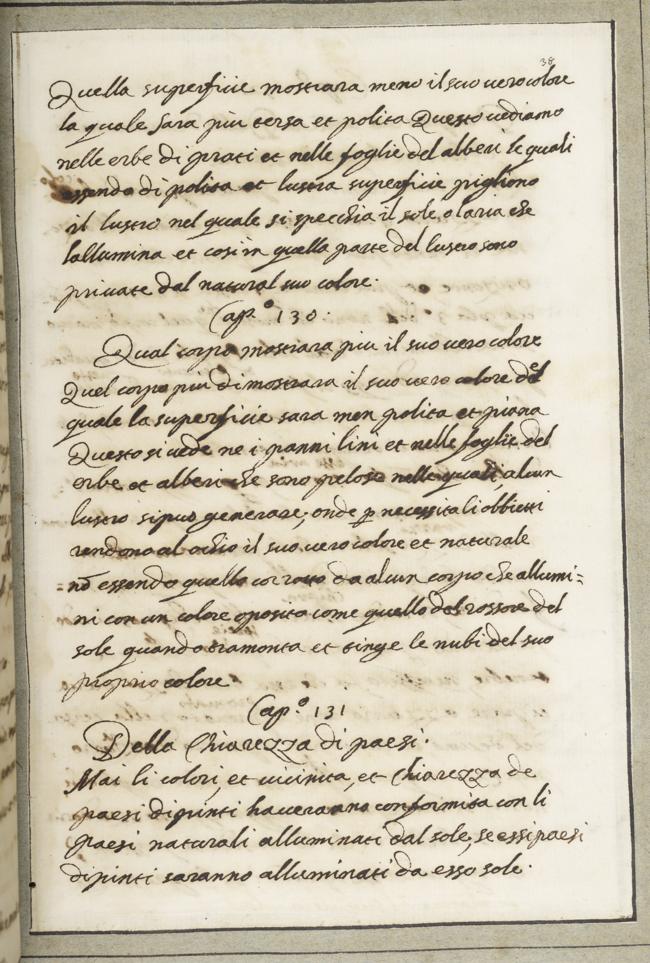 38
Quella superficie mostrara meno il suo vero colore
la quale sara piu tersa et polita Questo vediamo
nelle erbe di prati et nelle foglie del alberi le quali
essendo di polita et lustra superficie pigliono
il lustro nel quale si specchia il sole, o laria che
lallumina et cosi in quella parte del lustro sono
private dal natural suo colore.
Cap.º 130.
Qual corpo mostrara piu il suo vero colore
Quel corpo piu dimostrara il suo vero colore del
quale la superficie sara men polita et piana
Questo si vede ne i panni lini et nelle foglie del
erbe et alberi che sono pelose nelle quali alcun
lustro si puo generare, onde p necessita li obbietti
rendono al ochio il suo vero colore et naturale
nō essendo quello corrotto da alcun corpo che allumi=
ni con un colore oposito come quello del rossore del
sole quando tramonta et tinge le nubi del suo
proprio colore
Cap.º 131
Della Chiarezza di paesi.
Mai li colori, et vicinita, et Chiarezza de
paesi dipinti haveranno conformita con li
paesi naturali alluminati dal sole, se essi paesi
dipinti saranno alluminati da esso sole.